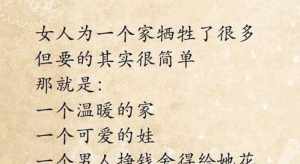 女人为一个家牺牲了很多
但要的其实很简单
那就是:
一个温暖的家
一个可爱的娃
一个男人挣钱舍得给她花